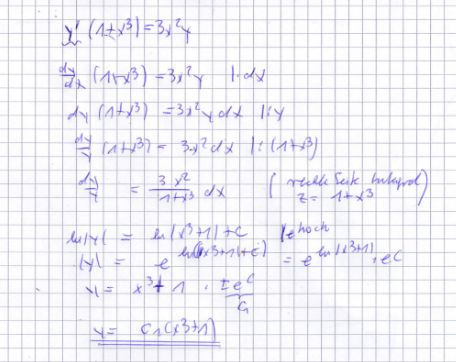 y' (1+x³) = 3x²y
dy/dx (1+x³) = 3x²y |· dx
dy (1+x³) = 3x²y dx |: y
dy/y (1+x³) = 3x² dx |: (1+x³)
dy/y = 3x²/1+x³ dx ( rechte Seite Integral z = 1+x³ )
ln|y| = ln|x³+1| + c | e hoch
|y| = e^(ln|x³+1|+c) = e^ln|x³+1| · e^c
y = x³+1 · ±e^c
c₁
y = c₁(x³+1)